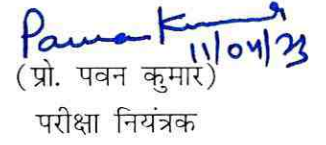 Pawan Kumar
11/04/23
(प्रो. पवन कुमार)
परीक्षा नियंत्रक